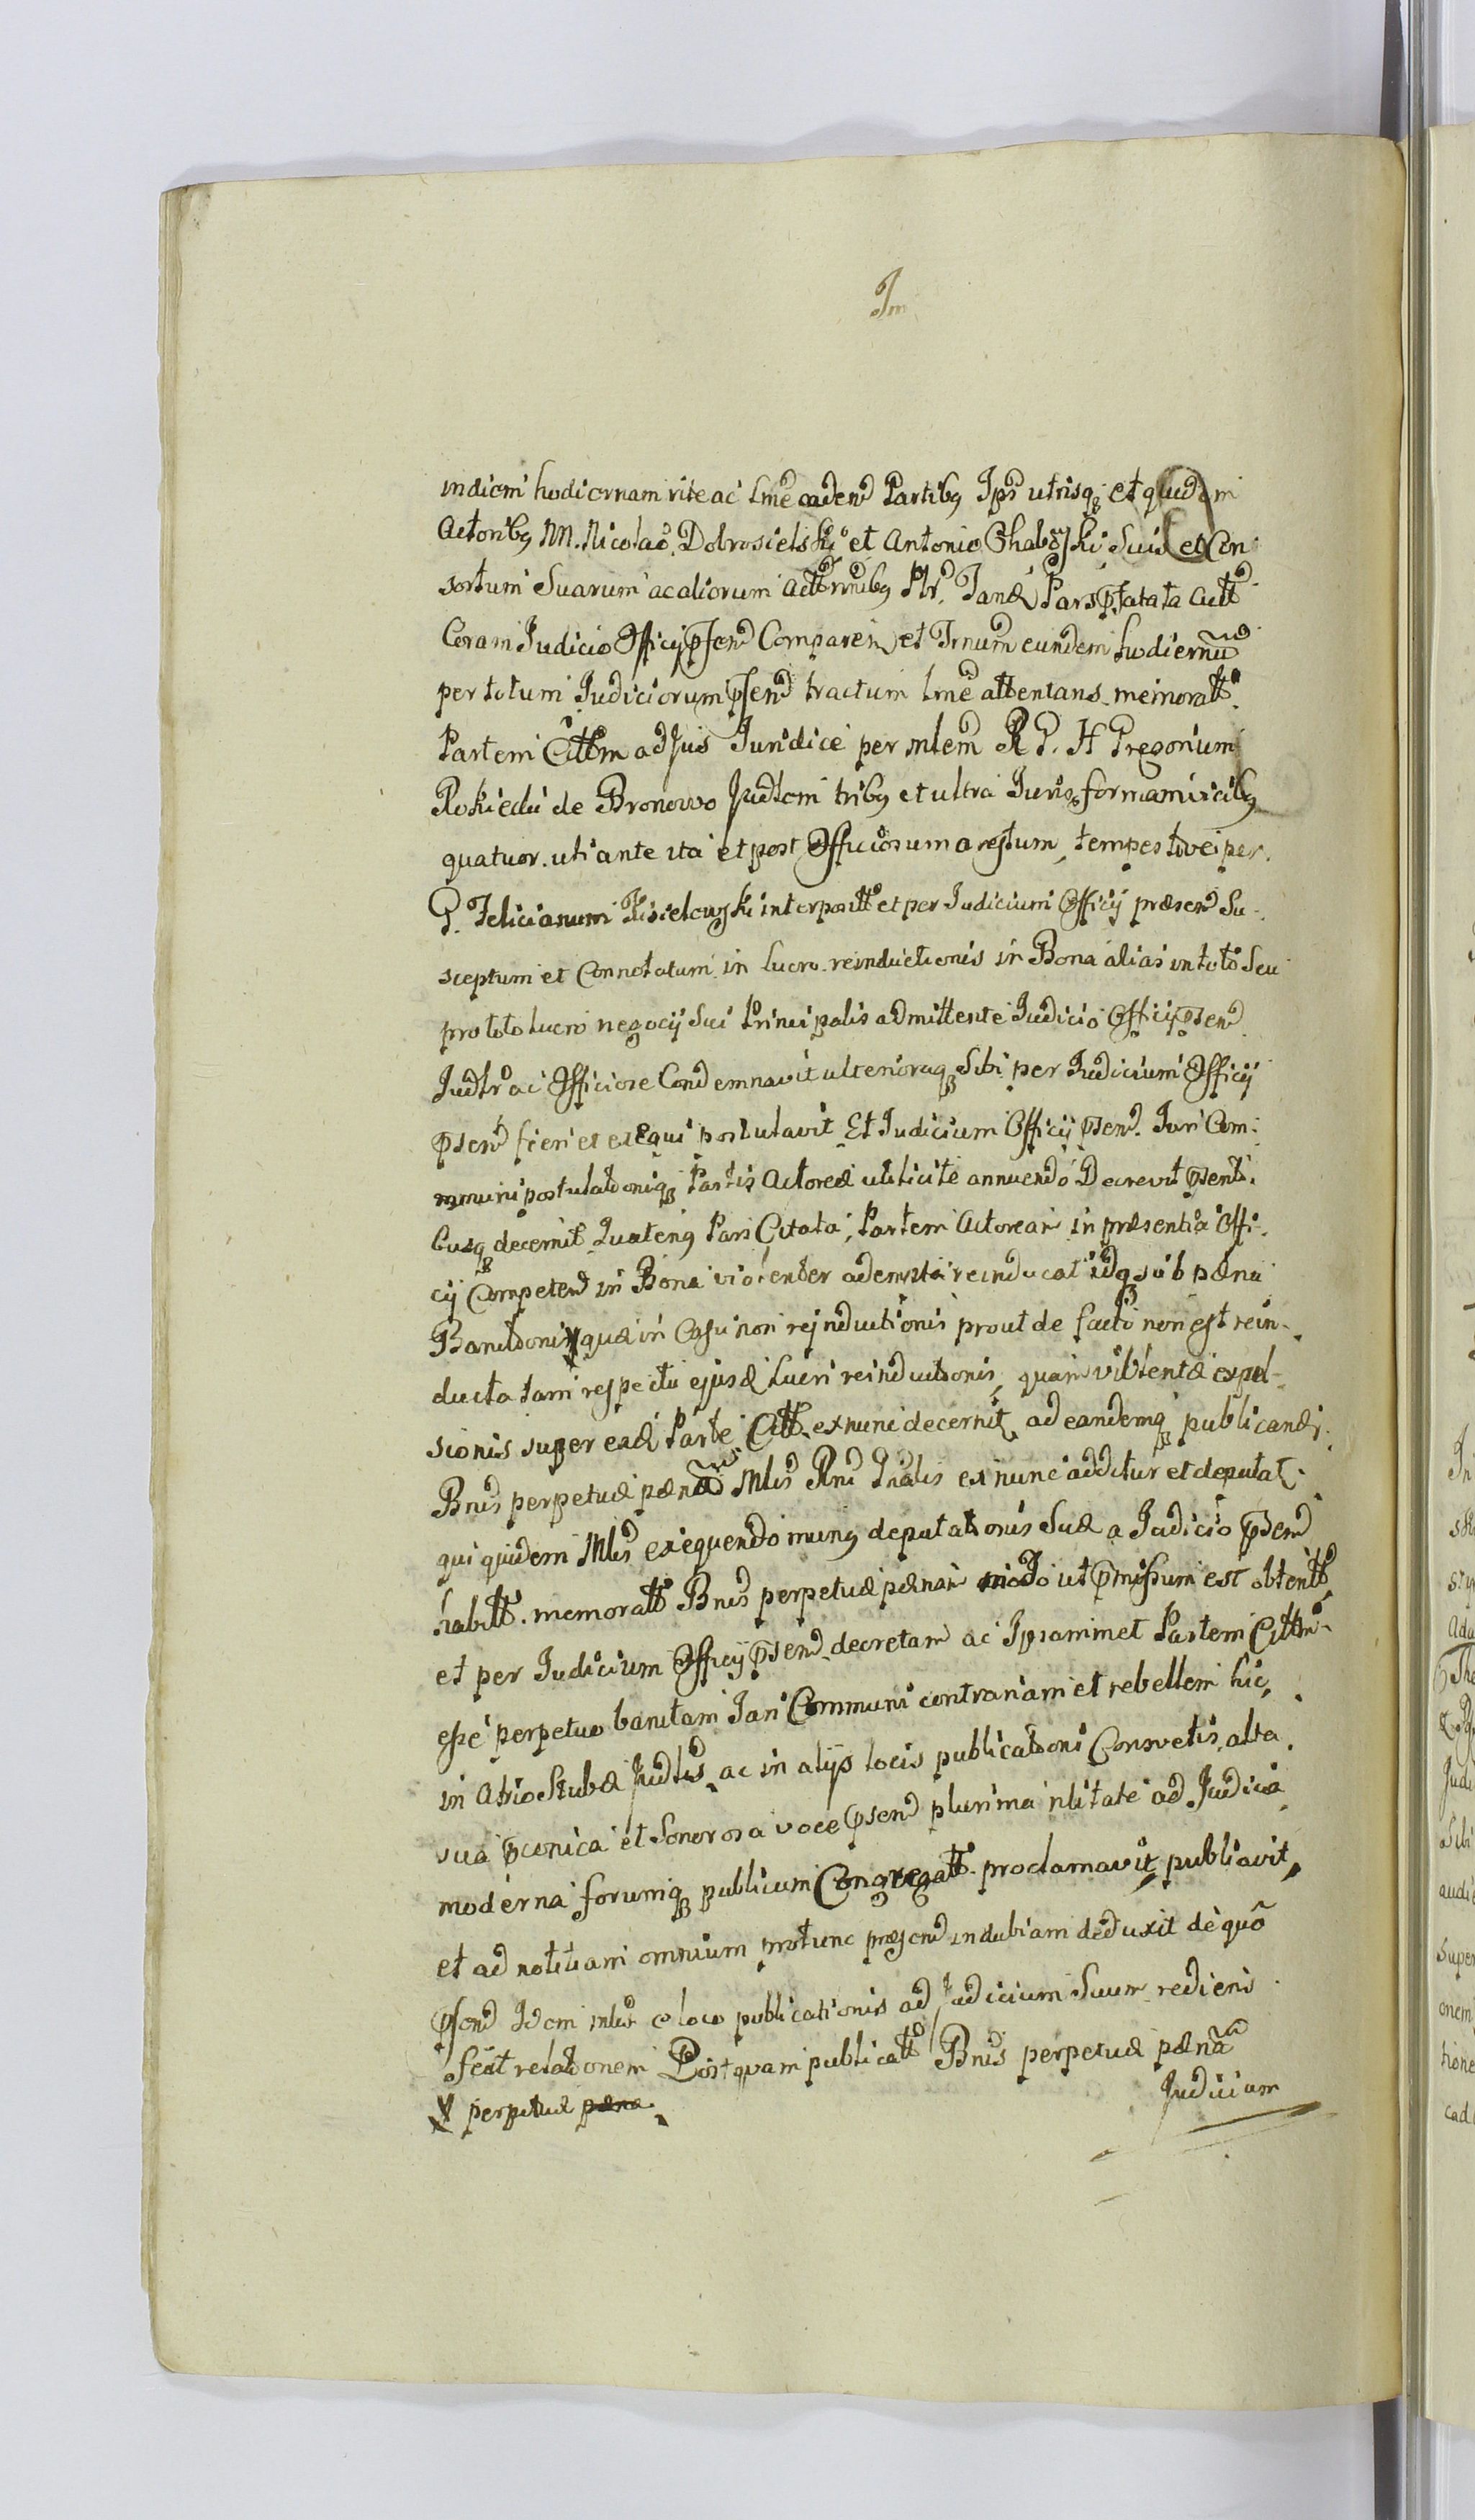 Im
in diem hodiernam rite ac lmē caden̄ Partibꝫ Ips̄ utrisqꝫ et quidem
Actoribꝫ MM. Nicolao Dobrosielski et Antonio Chabowski Suis et Con
sortum Suarum ac aliorum Act Nr̄ibꝫ Pars ꝓfatata Actt
Coram Judicio Officij p̄sen̄ Comparen̄ et Trnum eundem hodiernū
per totum Judiciorum p̄sen̄ tractum lmē attentans memoratt
Partem Cittm ad Jus Juridice per mlem R P. H Gregorium
Rokicki de Bronowo Judlem tribꝫ et ultra Juris formam vicibꝫ
quatuor uti ante ita et post Officiosum arestum tempestive per
G. Felicianum Kisielewski interpositt et per Judicium Officij præsen̄ Su-
sceptum et Connotatum in lucro reinductionis in Bona alias in toto Seu
pro toto lucro negocij Sui Principalis admittente Judicio Officij p̄sen̄
Judlr ac Officiose Condemnavit ulterioraqꝫ Sibi per Judicium Officij
p̄sen̄ fieri et exequi postulavit Et Judicium Officij p̄sen̄. Juri Com-
mmuni postulationiqꝫ Partis Actoreæ uti licite annuendo Decrevit p̄senti-
busqꝫ decernit Quatenꝫ Pars Citata, Partem Actoream in præsentia Offi-
cij Competen̄ in Bona violenter adempta reinducat idqꝫ sub pæna
Banitionis X quæ in Casu non reinductionis prout de facto non est rein-
ducta tam respectu ejusd lucri reinductionis, quam violentæ expul-
sionis super ead Parte Citt. ex nunc decernit ad eandemqꝫ publicand.
Bnis perpetuæ pænā Mlis Rni Gnalis ex nunc additur et deputat.
qui quidem Mlis exequendo munꝫ deputationis Suæ a Judicio p̄sen̄
habitt. memoratt Bnis perpetuæ pænam modo ut p̄missum est obtentt
et per Judicium Officij p̄sen̄ decretam ac Ipsammet Partem Cittm
esse perpetuo banitam Juri Communi contrariam et rebellem hic
in Atrio Stubæ Judlis ac in alijs locis publicationi Consvetis alta
sua p̄conica et Sonorosa voce p̄sen̄ plurima nlitate ad Judicia
moderna forumqꝫ publicum Congregatt proclamavit, publicavit,
et ad notitiam omnium protunc præsen̄ indubiam deduxit de quo
p̄sen̄ Idem mlis e loco publicationis ad Judicium Suum rediens
fecit relationem Postquam publicatt Bnis perpetuæ pænā
X perpetuæ pæna
Judicium